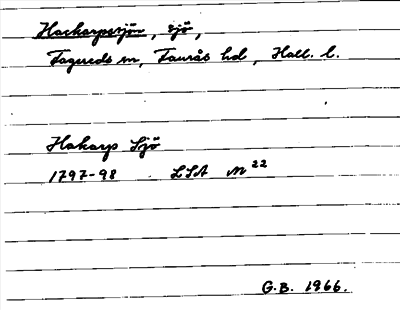 Hackarpssjön, sjö,
Fagereds sn, Faurås hd, Hall. l.
Hakarp Sjö
1797-98 LSA N 22
G.B. 1966.